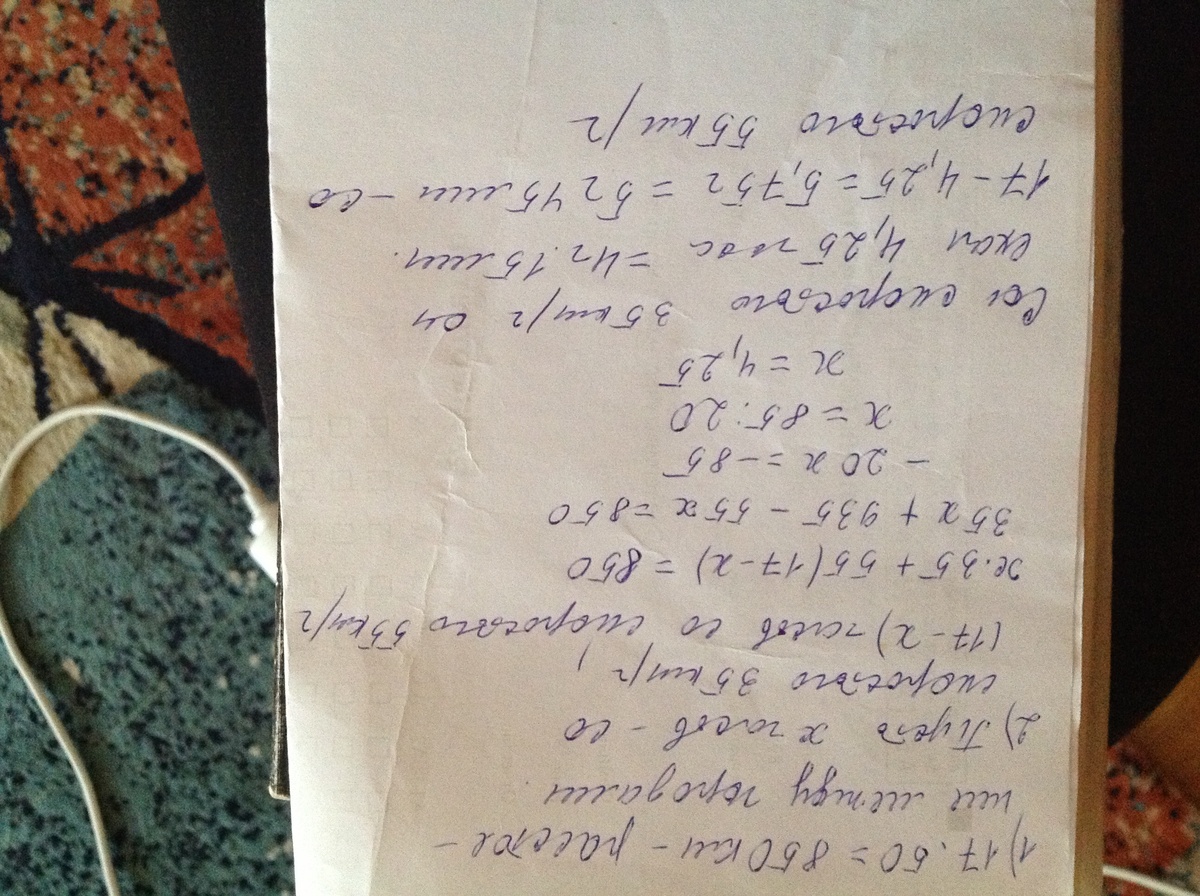 1) 17.50 = 850 км - расстоя-
ние между городами.
2) Пусть х часов - со
скоростью 35 км/г,
(17-х) часов со скоростью 55 км/г
х.35 + 55(17-х) = 850
35х + 935 - 55х = 850
- 20х = -85
х = 85:20
х = 4,25
Со скоростью 35 км/г он
ехал 4,25 час = 4г.15 мин.
17 - 4,25 = 5,75г = 5г 45 мин - со
скоростью 55 км/г